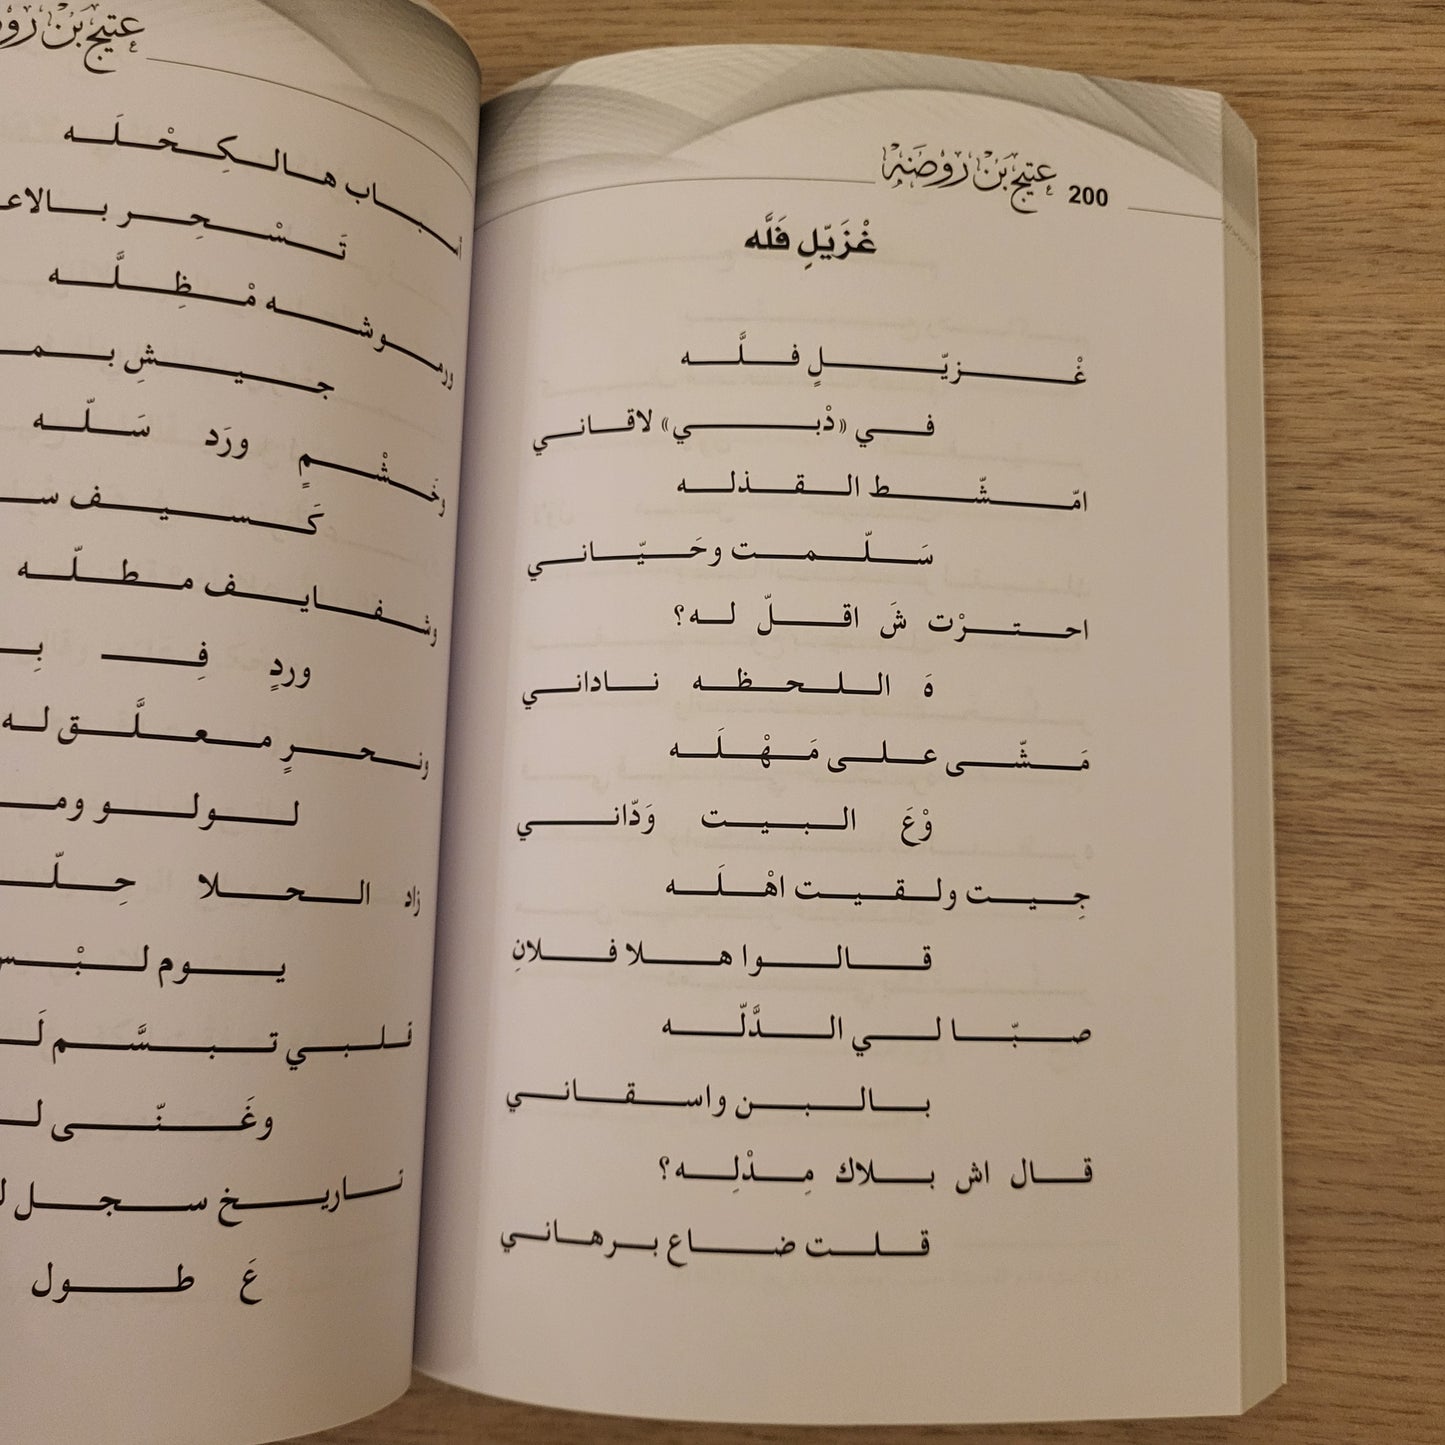 عتيج بن روضه 200
غْزَيّلِ فَلَّه
غْزيّلٍ فلَّه
في «دْبي» لاقاني
امّشّط القذله
سَلّمت وحَيّاني
احترْت شَ اقلّ له؟
هَ اللحظه ناداني
مَشّى على مَهْلَه
وْعَ البيت وَدّاني
جِيت ولقيت اهْلَه
قالوا هلا فلانِ
صبّا لي الدَّلّه
بالبن واسقاني
قال اش بلاك مِدْلِه؟
قلت ضاع برهاني
عتيج بن
هالكِحْلَه
تَسْحِر
ورموشه مْظِلَّه
جيشِ
وخَشْمٍ ورَد سَلّه
كَسيف
وشفايف مطلّه
وردٍ فِ
ونحرٍ معلَّق له
لولو
زاد الحلا
يوم
قلبي تبسَّم
وغَنّى
تاريخ سجل
عَ طول